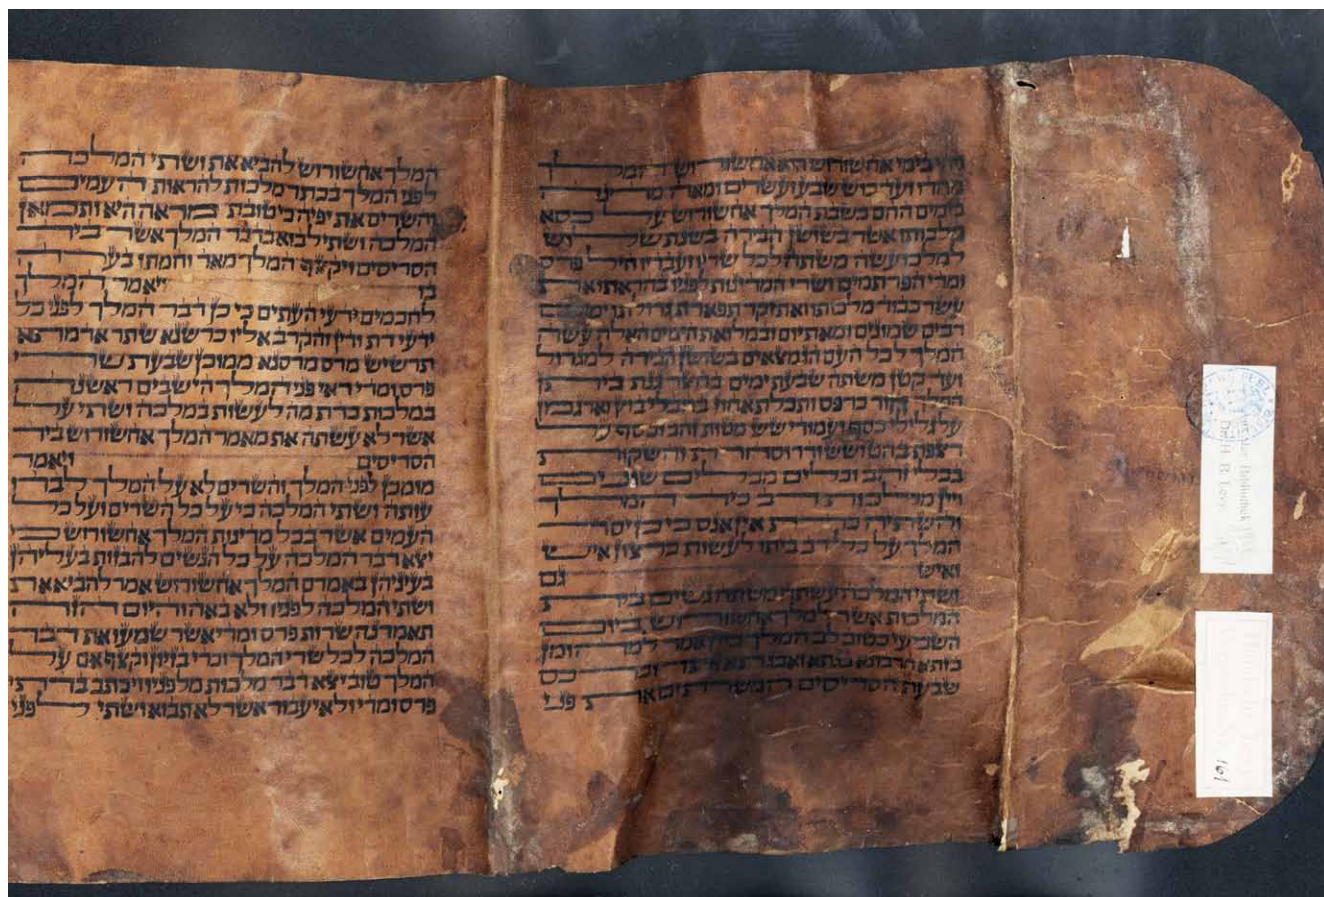 ויהי בימי אחשורוש הוא אחשורוש המלך
מהדו ועד כוש שבע ועשרים ומאה מדינה
בימים ההם כשבת המלך אחשורוש על כסא
מלכותו אשר בשושן הבירה בשנת שלוש
למלכו עשה משתה לכל שריו ועבדיו חיל פרס
ומדי הפרתמים ושרי המדינות לפניו בהראתו את
עשר כבוד מלכותו ואת יקר תפארת גדולתו ימים
רבים שמונים ומאת יום ובמלואת הימים האלה עשה
המלך לכל העם הנמצאים בשושן הבירה למגדול
ועד קטן משתה שבעת ימים בחצר גנת ביתן
המלך חור כרפס ותכלת אחוז בחבלי בוץ וארגמן
על גלילי כסף ועמודי שש מטות זהב וכסף על
רצפת בהט ושש ודר וסחרת והשקות
בכלי זהב וכלים מכלים שונים
ויין מלכות רב כיד המלך
והשתיה כדת אין אנס כי כן יסד
המלך על כל רב ביתו לעשות כרצון איש
ואיש גם
ושתי המלכה עשתה משתה נשים בית
המלכות אשר למלך אחשורוש ביום
השביעי כטוב לב המלך ביין אמר למהומן
בזתא חרבונא בגתא ואבגתא זתר וכרכס
שבעת הסריסים המשרתים את פני
המלך אחשורוש להביא את ושתי המלכה
לפני המלך בכתר מלכות להראות העמים
והשרים את יפיה כי טובת מראה היא ותמאן
המלכה ושתי לבוא בדבר המלך אשר ביד
הסריסים ויקצף המלך מאד וחמתו בערה
בו ויאמר המלך
לחכמים ידעי העתים כי כן דבר המלך לפני כל
ידעי דת ודין והקרב אליו כרשנא שתר אדמתא
תרשיש מרס מרסנא ממוכן שבעת שרי
פרס ומדי ראי פני המלך הישבים ראשנה
במלכות כדת מה לעשות במלכה ושתי על
אשר לא עשתה את מאמר המלך אחשורוש ביד
הסריסים ויאמר
מומכן לפני המלך והשרים לא על המלך לבדו
עותה ושתי המלכה כי על כל השרים ועל כל
העמים אשר בכל מדינות המלך אחשורוש כי
יצא דבר המלכה על כל הנשים להבזות בעליהן
בעיניהן באמרם המלך אחשורוש אמר להביא את
ושתי המלכה לפניו ולא באה והיום הזה
תאמרנה שרות פרס ומדי אשר שמעו את דבר
המלכה לכל שרי המלך וכדי בזיון וקצף אם על
המלך טוב יצא דבר מלכות מלפניו ויכתב בדתי
פרס ומדי ולא יעבור אשר לא תבוא ושתי לפני
161